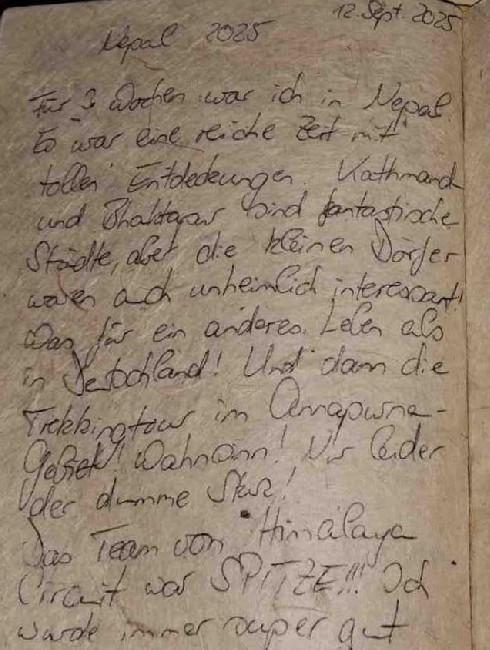 12. Sept. 2025
Nepal 2025
Für 3 Wochen war ich in Nepal.
Es war eine reiche Zeit mit
tollen Entdeckungen. Kathmandu
und Bhaktapur sind fantastische
Städte, aber die kleinen Dörfer
waren auch unheimlich interessant!
Was für ein anderes Leben als
in Deutschland! Und dann die
Trekkingtour im Annapurna-
Gebiet! Wahnsinn! Nur leider
der dumme Sturz!
Das Team von Himalaya
Circuit war SPITZE!!! Ich
wurde immer super gut